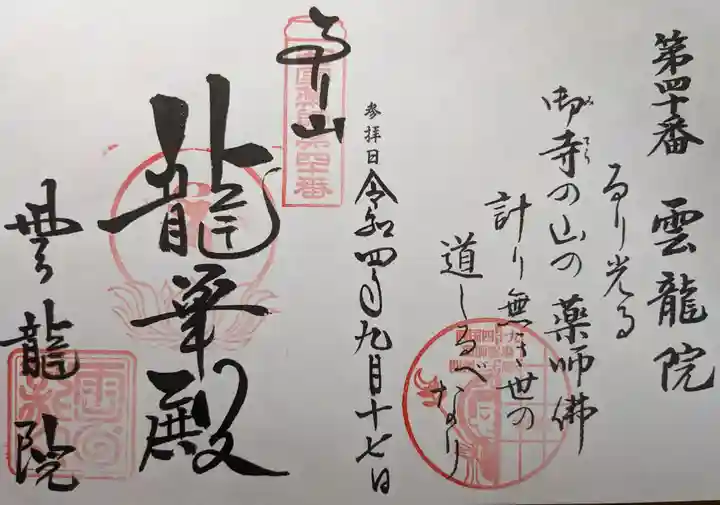 第四十番 雲龍院
るり光る
御寺の山の薬師佛
計り無き世の
道しるべなり
参拝日 令和四年九月十七日
るり山
龍華殿
雲龍院